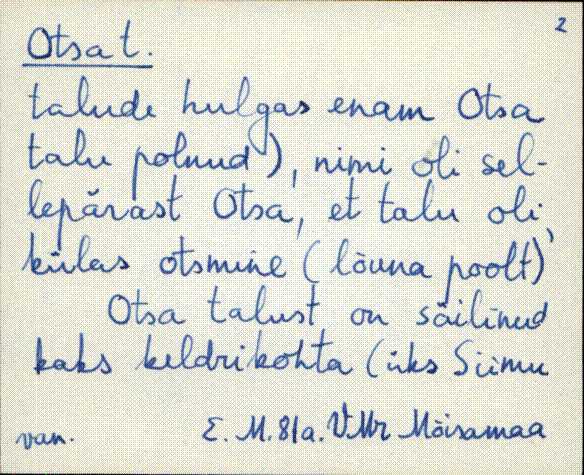 2
Otsa t.
talude hulgas enam Otsa
talu polnud), nimi oli sel-
lepärast Otsa, et talu oli
külas otsmine (lõuna poolt),
Otsa talust on säilinud
kaks keldrikohta (üks Siimu
van. E. M. 81a. VMr Mõisamaa